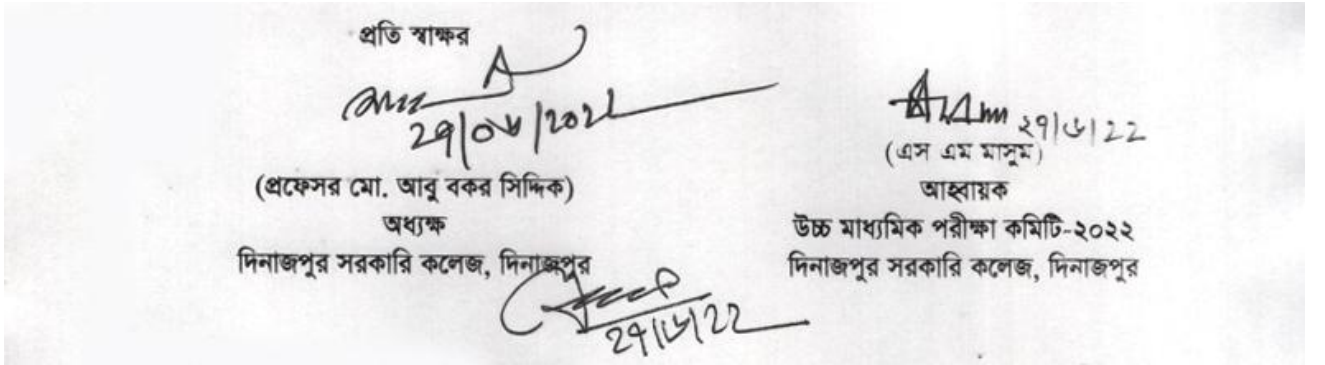 প্রতি স্বাক্ষর
২৭/০৬/২০২২
(প্রফেসর মো. আবু বকর সিদ্দিক)
অধ্যক্ষ
দিনাজপুর সরকারি কলেজ, দিনাজপুর
২৭/৬/২২
(এস এম মাসুম)
আহ্বায়ক
উচ্চ মাধ্যমিক পরীক্ষা কমিটি-২০২২
দিনাজপুর সরকারি কলেজ, দিনাজপুর
২৭/৬/২২